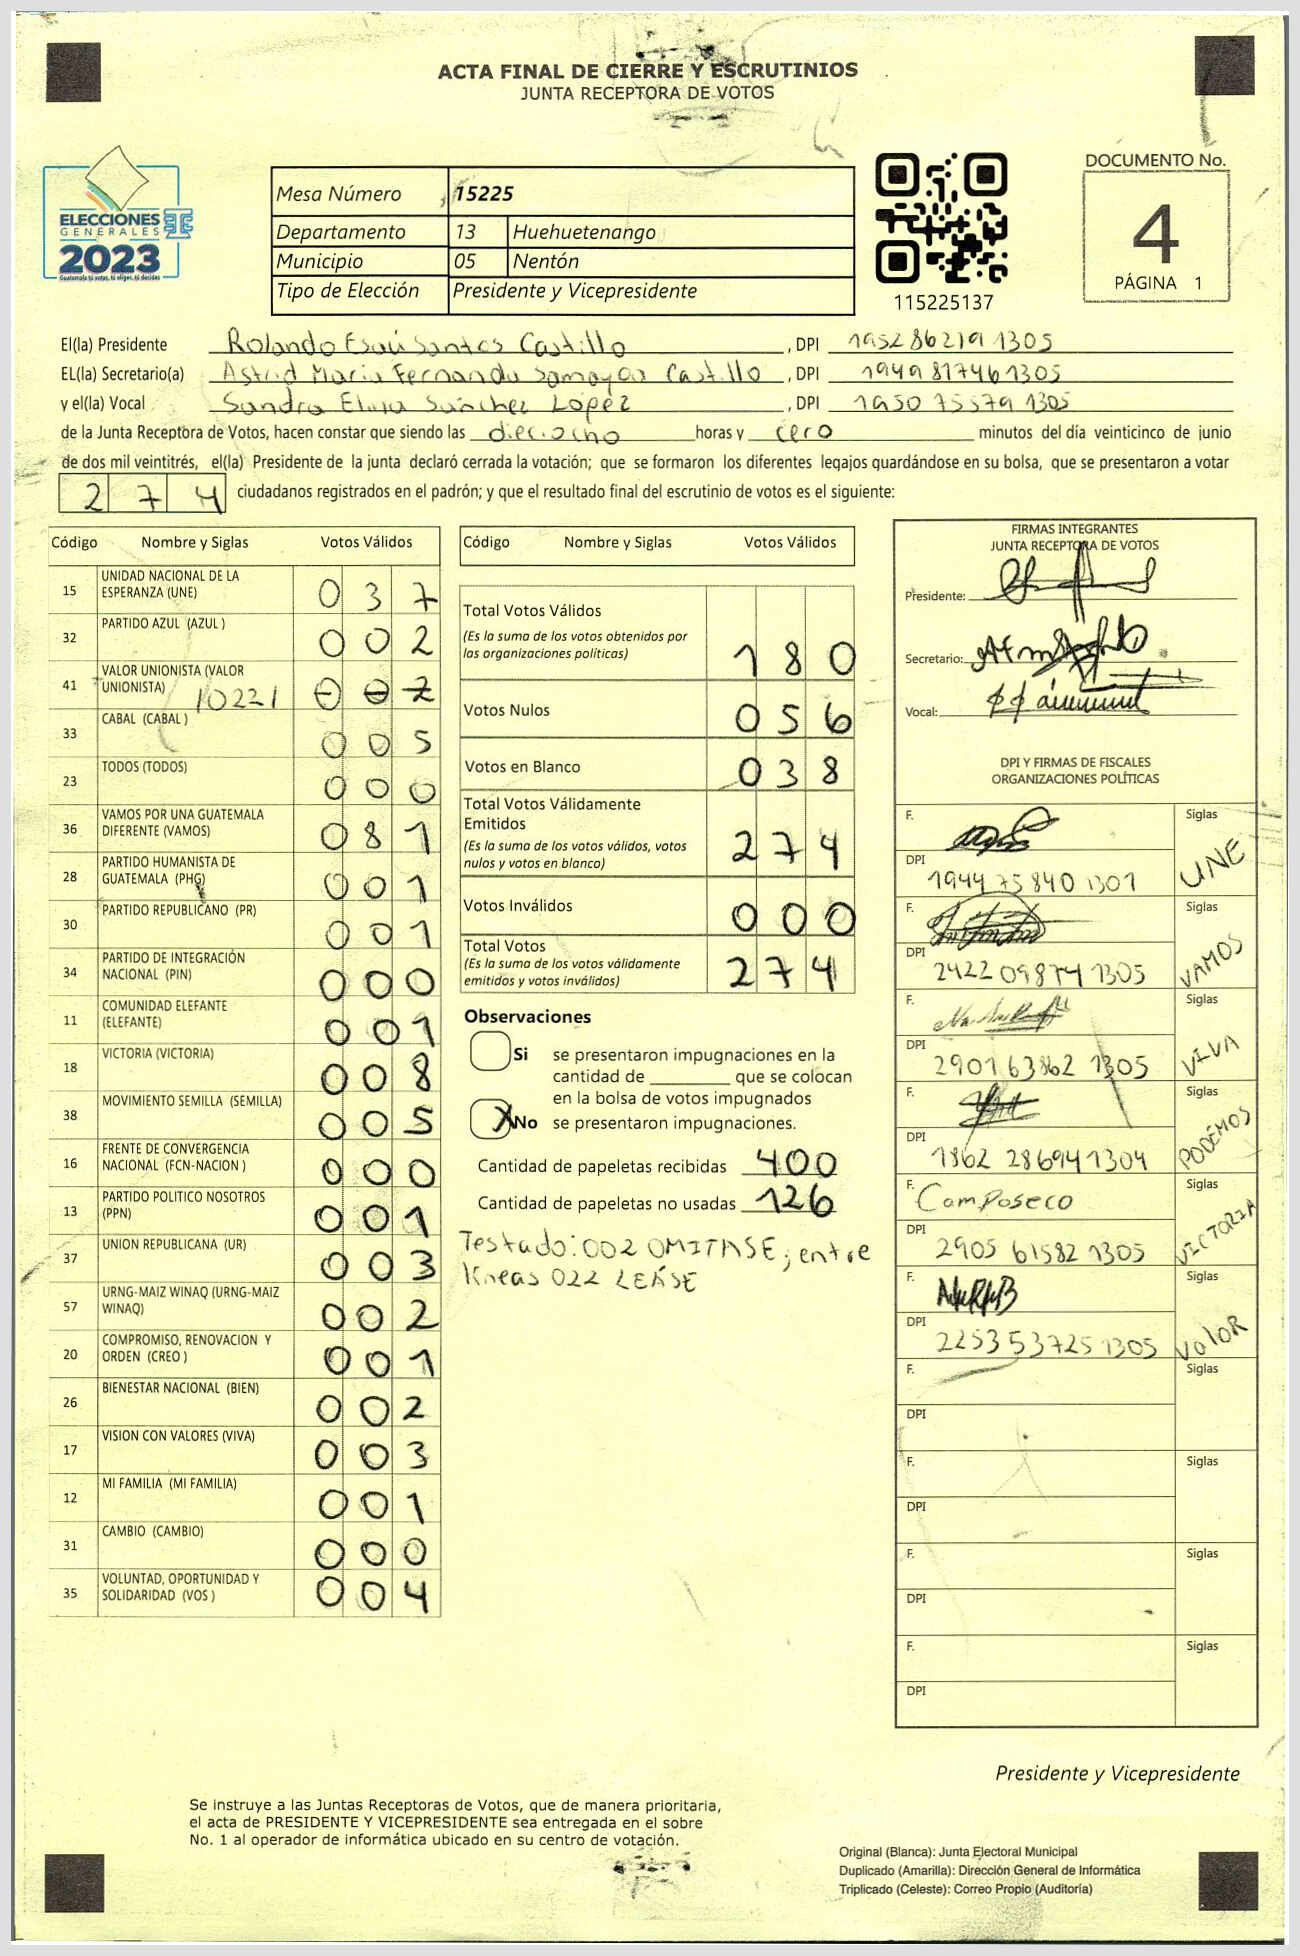 ACTA FINAL DE CIERRE Y ESCRUTINIOS
JUNTA RECEPTORA DE VOTOS
ELECCIONES
GENERALES
2023
Guatemala tú votas, tú eliges, tú decides
Mesa Número 15225
Departamento 13 Huehuetenango
Municipio 05 Nentón
Tipo de Elección Presidente y Vicepresidente
115225137
DOCUMENTO No.
4
PÁGINA 1
El(la) Presidente Rolando Esaú Santos Castillo, DPI 195286219 1305
EL(la) Secretario(a) Astrid María Fernanda Samayoa Castillo, DPI 1949817461305
y el(la) Vocal Sandra Elvira Sánchez López, DPI 1950 75579 1305
de la Junta Receptora de Votos, hacen constar que siendo las dieciocho horas y cero minutos del día veinticinco de junio
de dos mil veintitrés, el(la) Presidente de la junta declaró cerrada la votación; que se formaron los diferentes legajos guardándose en su bolsa, que se presentaron a votar
274 ciudadanos registrados en el padrón; y que el resultado final del escrutinio de votos es el siguiente:
Código Nombre y Siglas Votos Válidos
15 UNIDAD NACIONAL DE LA ESPERANZA (UNE) 037
32 PARTIDO AZUL (AZUL ) 002
41 VALOR UNIONISTA (VALOR UNIONISTA) 10221 002
33 CABAL (CABAL ) 005
23 TODOS (TODOS) 000
36 VAMOS POR UNA GUATEMALA DIFERENTE (VAMOS) 081
28 PARTIDO HUMANISTA DE GUATEMALA (PHG) 001
30 PARTIDO REPUBLICANO (PR) 001
34 PARTIDO DE INTEGRACIÓN NACIONAL (PIN) 000
11 COMUNIDAD ELEFANTE (ELEFANTE) 001
18 VICTORIA (VICTORIA) 008
38 MOVIMIENTO SEMILLA (SEMILLA) 005
16 FRENTE DE CONVERGENCIA NACIONAL (FCN-NACION ) 000
13 PARTIDO POLITICO NOSOTROS (PPN) 001
37 UNION REPUBLICANA (UR) 003
57 URNG-MAIZ WINAQ (URNG-MAIZ WINAQ) 002
20 COMPROMISO, RENOVACION Y ORDEN (CREO ) 001
26 BIENESTAR NACIONAL (BIEN) 002
17 VISION CON VALORES (VIVA) 003
12 MI FAMILIA (MI FAMILIA) 001
31 CAMBIO (CAMBIO) 000
35 VOLUNTAD, OPORTUNIDAD Y SOLIDARIDAD (VOS ) 004
Código Nombre y Siglas Votos Válidos
Total Votos Válidos
(Es la suma de los votos obtenidos por
las organizaciones políticas) 180
Votos Nulos 056
Votos en Blanco 038
Total Votos Válidamente
Emitidos
(Es la suma de los votos válidos, votos
nulos y votos en blanco) 274
Votos Inválidos 000
Total Votos
(Es la suma de los votos válidamente
emitidos y votos inválidos) 274
Observaciones
Si se presentaron impugnaciones en la
cantidad de ________ que se colocan
en la bolsa de votos impugnados
X No se presentaron impugnaciones.
Cantidad de papeletas recibidas 400
Cantidad de papeletas no usadas 126
Testado: 002 OMITASE; entre
líneas 022 LEÁSE
FIRMAS INTEGRANTES
JUNTA RECEPTORA DE VOTOS
Presidente:
Secretario:
Vocal:
DPI Y FIRMAS DE FISCALES
ORGANIZACIONES POLÍTICAS
F. Siglas
DPI 1944 75840 1301 UNE
F. Siglas
DPI 2422 09874 1305 VAMOS
F. Siglas
DPI 2901 63862 1305 VIVA
F. Siglas
DPI 1862 28694 1304 PODÉMOS
F. Composeco Siglas
DPI 2905 61582 1305 VICTORIA
F. Siglas
DPI 2253 53725 1305 VALOR
F. Siglas
DPI
F. Siglas
DPI
F. Siglas
DPI
F. Siglas
DPI
Presidente y Vicepresidente
Se instruye a las Juntas Receptoras de Votos, que de manera prioritaria,
el acta de PRESIDENTE Y VICEPRESIDENTE sea entregada en el sobre
No. 1 al operador de informática ubicado en su centro de votación.
Original (Blanca): Junta Electoral Municipal
Duplicado (Amarilla): Dirección General de Informática
Triplicado (Celeste): Correo Propio (Auditoría)